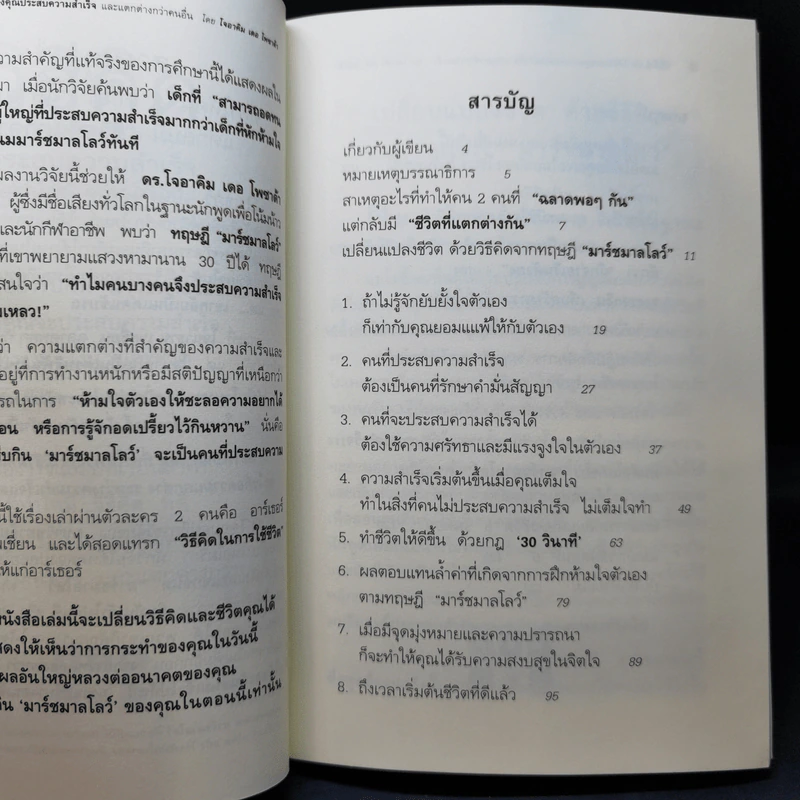 งคุณประสบความสำเร็จ และแตกต่างกว่าคนอื่น โดย โจอาคิม เดอ โพซาด้า
วามสำคัญที่แท้จริงของการศึกษานี้ได้แสดงผลใน
มา เมื่อนักวิจัยค้นพบว่า เด็กที่ “สามารถอดทน
ผู้ใหญ่ที่ประสบความสำเร็จมากกว่าเด็กที่หักห้ามใจ
นมมาร์ชมาลโลว์ทันที
ผลงานวิจัยนี้ช่วยให้ ดร.โจอาคิม เดอ โพซาด้า
ผู้ซึ่งมีชื่อเสียงทั่วโลกในฐานะนักพูดเพื่อโน้มน้าว
และนักกีฬาอาชีพ พบว่า ทฤษฎี “มาร์ชมาลโลว์”
ที่เขาพยายามแสวงหามานาน 30 ปีได้ ทฤษฎี
สนใจว่า “ทำไมคนบางคนจึงประสบความสำเร็จ
มเหลว!”
ว่า ความแตกต่างที่สำคัญของความสำเร็จและ
อยู่ที่การทำงานหนักหรือมีสติปัญญาที่เหนือกว่า
รถในการ “ห้ามใจตัวเองให้ชะลอความอยากได้
อน หรือการรู้จักอดเปรี้ยวไว้กินหวาน” นั่นคือ
บกิน ‘มาร์ชมาลโลว์’ จะเป็นคนที่ประสบความ
นี้ใช้เรื่องเล่าผ่านตัวละคร 2 คนคือ อาร์เธอร์
เชี่ยน และได้สอดแทรก “วิธีคิดในการใช้ชีวิต”
ให้แก่อาร์เธอร์
หนังสือเล่มนี้จะเปลี่ยนวิธีคิดและชีวิตคุณได้
สดงให้เห็นว่าการกระทำของคุณในวันนี้
ผลอันใหญ่หลวงต่ออนาคตของคุณ
กิน ‘มาร์ชมาลโลว์’ ของคุณในตอนนี้เท่านั้น
สารบัญ
เกี่ยวกับผู้เขียน 4
หมายเหตุบรรณาธิการ 5
สาเหตุอะไรที่ทำให้คน 2 คนที่ “ฉลาดพอๆ กัน”
แต่กลับมี “ชีวิตที่แตกต่างกัน” 7
เปลี่ยนแปลงชีวิต ด้วยวิธีคิดจากทฤษฎี “มาร์ชมาลโลว์” 11
1. ถ้าไม่รู้จักยับยั้งใจตัวเอง
ก็เท่ากับคุณยอมแพ้ให้กับตัวเอง 19
2. คนที่ประสบความสำเร็จ
ต้องเป็นคนที่รักษาคำมั่นสัญญา 27
3. คนที่จะประสบความสำเร็จได้
ต้องใช้ความศรัทธาและมีแรงจูงใจในตัวเอง 37
4. ความสำเร็จเริ่มต้นขึ้นเมื่อคุณเต็มใจ
ทำในสิ่งที่คนไม่ประสบความสำเร็จ ไม่เต็มใจทำ 49
5. ทำชีวิตให้ดีขึ้น ด้วยกฎ ‘30 วินาที’ 63
6. ผลตอบแทนล้ำค่าที่เกิดจากการฝึกห้ามใจตัวเอง
ตามทฤษฎี “มาร์ชมาลโลว์” 79
7. เมื่อมีจุดมุ่งหมายและความปรารถนา
ก็จะทำให้คุณได้รับความสงบสุขในจิตใจ 89
8. ถึงเวลาเริ่มต้นชีวิตที่ดีแล้ว 95